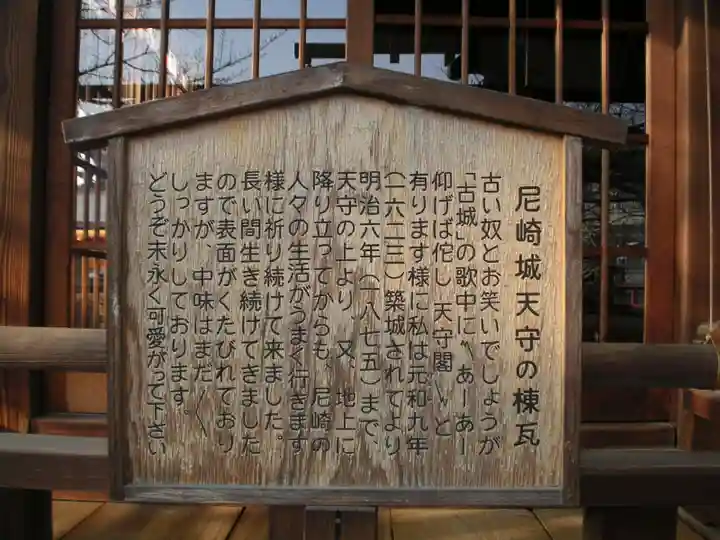 尼崎城天守の棟瓦
古い奴とお笑いでしょうが
「古城」の歌中に〝あーあー
仰げば侘し 天守閣〟と
有ります様に私は元和九年
(一六二三)築城されてより
明治六年(一八七五)まで、
天守の上より、又、地上に
降り立ってからも、尼崎の
人々の生活がうまく行きます
様に祈り続けて来ました。
長い間生き続けてきました
ので表面がくたびれており
ますが、中味はまだ〱
しっかりしております。
どうぞ末永く可愛がって下さい